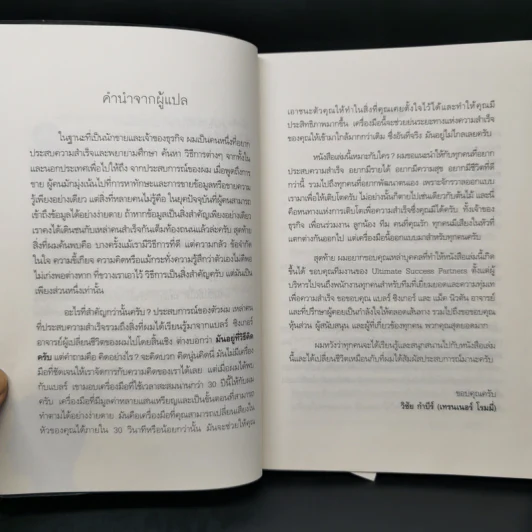 คำนำจากผู้แปล
ในฐานะที่เป็นนักขายและเจ้าของธุรกิจ ผมเป็นคนหนึ่งที่อยาก
ประสบความสำเร็จและพยายามศึกษา ค้นหา วิธีการต่างๆ จากทั้งใน
และนอกประเทศเพื่อไปให้ถึง จากประสบการณ์ของผม เมื่อพูดถึงการ
ขาย ผู้คนมักมุ่งเน้นไปที่การหาทักษะและการขายข้อมูลหรือขายความ
รู้เพียงอย่างเดียว แต่สิ่งที่หลายคนไม่รู้คือ ในยุคปัจจุบันที่ผู้คนสามารถ
เข้าถึงข้อมูลได้อย่างง่ายดาย ถ้าหากข้อมูลเป็นสิ่งสำคัญเพียงอย่างเดียว
เราคงได้เดินชนกับเหล่าคนสำเร็จกันเต็มท้องถนนแล้วล่ะครับ สุดท้าย
สิ่งที่ผมค้นพบคือ บางครั้งแม้เรามีวิธีการที่ดี แต่ความกลัว ข้อจำกัด
ในใจ ความขี้เกียจ ความคิดหรือแม้กระทั่งความรู้สึกว่าตัวเองไม่ดีพอ
ไม่เก่งพอต่างหาก ที่ขวางเราเอาไว้ วิธีการเป็นสิ่งสำคัญครับ แต่มันเป็น
เพียงส่วนหนึ่งเท่านั้น
อะไรที่สำคัญกว่านั้นครับ? ประสบการณ์ของตัวผม เหล่าคน
ที่ประสบความสำเร็จรวมถึงสิ่งที่ผมได้เรียนรู้มาจากแบลร์ ซิงเกอร์
อาจารย์ผู้เปลี่ยนชีวิตของผมไปโดยสิ้นเชิง ต่างบอกว่า มันอยู่ที่วิธีคิด
ครับ แต่คำถามคือ คิดอย่างไร? จะคิดบวก คิดนู่นคิดนี่ มันไม่มีเครื่อง
มือที่ชัดเจนให้เราจัดการกับความคิดของเราได้เลย แต่เมื่อผมได้พบ
กับแบลร์ เขามอบเครื่องมือที่ใช้เวลาสะสมนานกว่า 30 ปีนี้ให้กับผม
ครับ เครื่องมือที่มีมูลค่าหลายแสนเหรียญและเป็นขั้นตอนที่สามารถ
ทำตามได้อย่างง่ายดาย มันคือเครื่องมือที่คุณสามารถเปลี่ยนเสียงใน
หัวของคุณได้ภายใน 30 วินาทีหรือน้อยกว่านั้น มันจะช่วยให้คุณ
เอาชนะตัวคุณให้ทำในสิ่งที่คุณเคยตั้งใจไว้ได้และทำให้คุณมี
ประสิทธิภาพมากขึ้น เครื่องมือนี้จะช่วยย่นระยะทางแห่งความสำเร็จ
ของคุณให้เข้ามาใกล้มากกว่าเดิม ซึ่งอันที่จริง มันอยู่ไม่ไกลเลยครับ
หนังสือเล่มนี้เหมาะกับใคร? ผมขอแนะนำให้กับทุกคนที่อยาก
ประสบความสำเร็จ อยากมีรายได้ อยากมีความสุข อยากมีชีวิตที่ดี
กว่านี้ รวมไปถึงทุกคนที่อยากพัฒนาตนเอง เพราะจักรวาลออกแบบ
เรามาเพื่อให้เติบโตครับ ไม่อย่างนั้นก็ตายไปเช่นเดียวกับต้นไม้ และนี่
คือหนทางแห่งการเติบโตเพื่อความสำเร็จซึ่งคุณมีได้ครับ ทั้งเจ้าของ
ธุรกิจ เพื่อนร่วมงาน ลูกน้อง ทีม คนที่คุณรัก ทุกคนมีเสียงในหัวที่
แตกต่างกันออกไป แต่เครื่องมือนี้ออกแบบมาสำหรับทุกคนครับ
สุดท้าย ผมอยากขอบคุณเหล่าบุคคลที่ทำให้หนังสือเล่มนี้เกิด
ขึ้นได้ ขอบคุณทีมงานของ Ultimate Success Partners ตั้งแต่ผู้
บริหารไปจนถึงพนักงานทุกคนสำหรับทีมที่เยี่ยมยอดและความทุ่มเท
เพื่อความสำเร็จ ขอขอบคุณ แบลร์ ซิงเกอร์ และ แม๊ค นิวตัน อาจารย์
และที่ปรึกษาผู้คอยเป็นกำลังใจให้ตลอดเส้นทาง รวมไปถึงขอขอบคุณ
หุ้นส่วน ผู้สนับสนุน และผู้ที่เกี่ยวข้องทุกคน พวกคุณสุดยอดมาก
ผมหวังว่าทุกคนจะได้เรียนรู้และสนุกสนานไปกับหนังสือเล่ม
นี้และได้เปลี่ยนชีวิตเหมือนกับที่ผมได้สัมผัสประสบการณ์มานะครับ
ขอบคุณครับ
วิชัย กำบีร์ (เทรนเนอร์ โรมมี่)